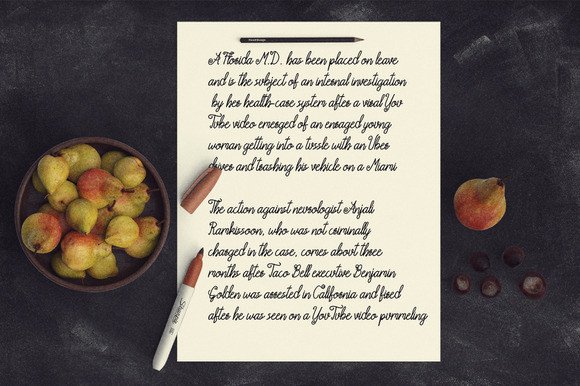 A Florida M.D. has been placed on leave
and is the subject of an internal investigation
by her health-care system after a viral You
Tube video emerged of an enraged young
woman getting into a tussle with an Uber
driver and trashing his vehicle on a Miami
The action against neurologist Anjali
Ramkissoon, who was not criminally
charged in the case, comes about three
months after Taco Bell executive Benjamin
Golden was arrested in California and fired
after he was seen on a YouTube video pummeling
Sharpie